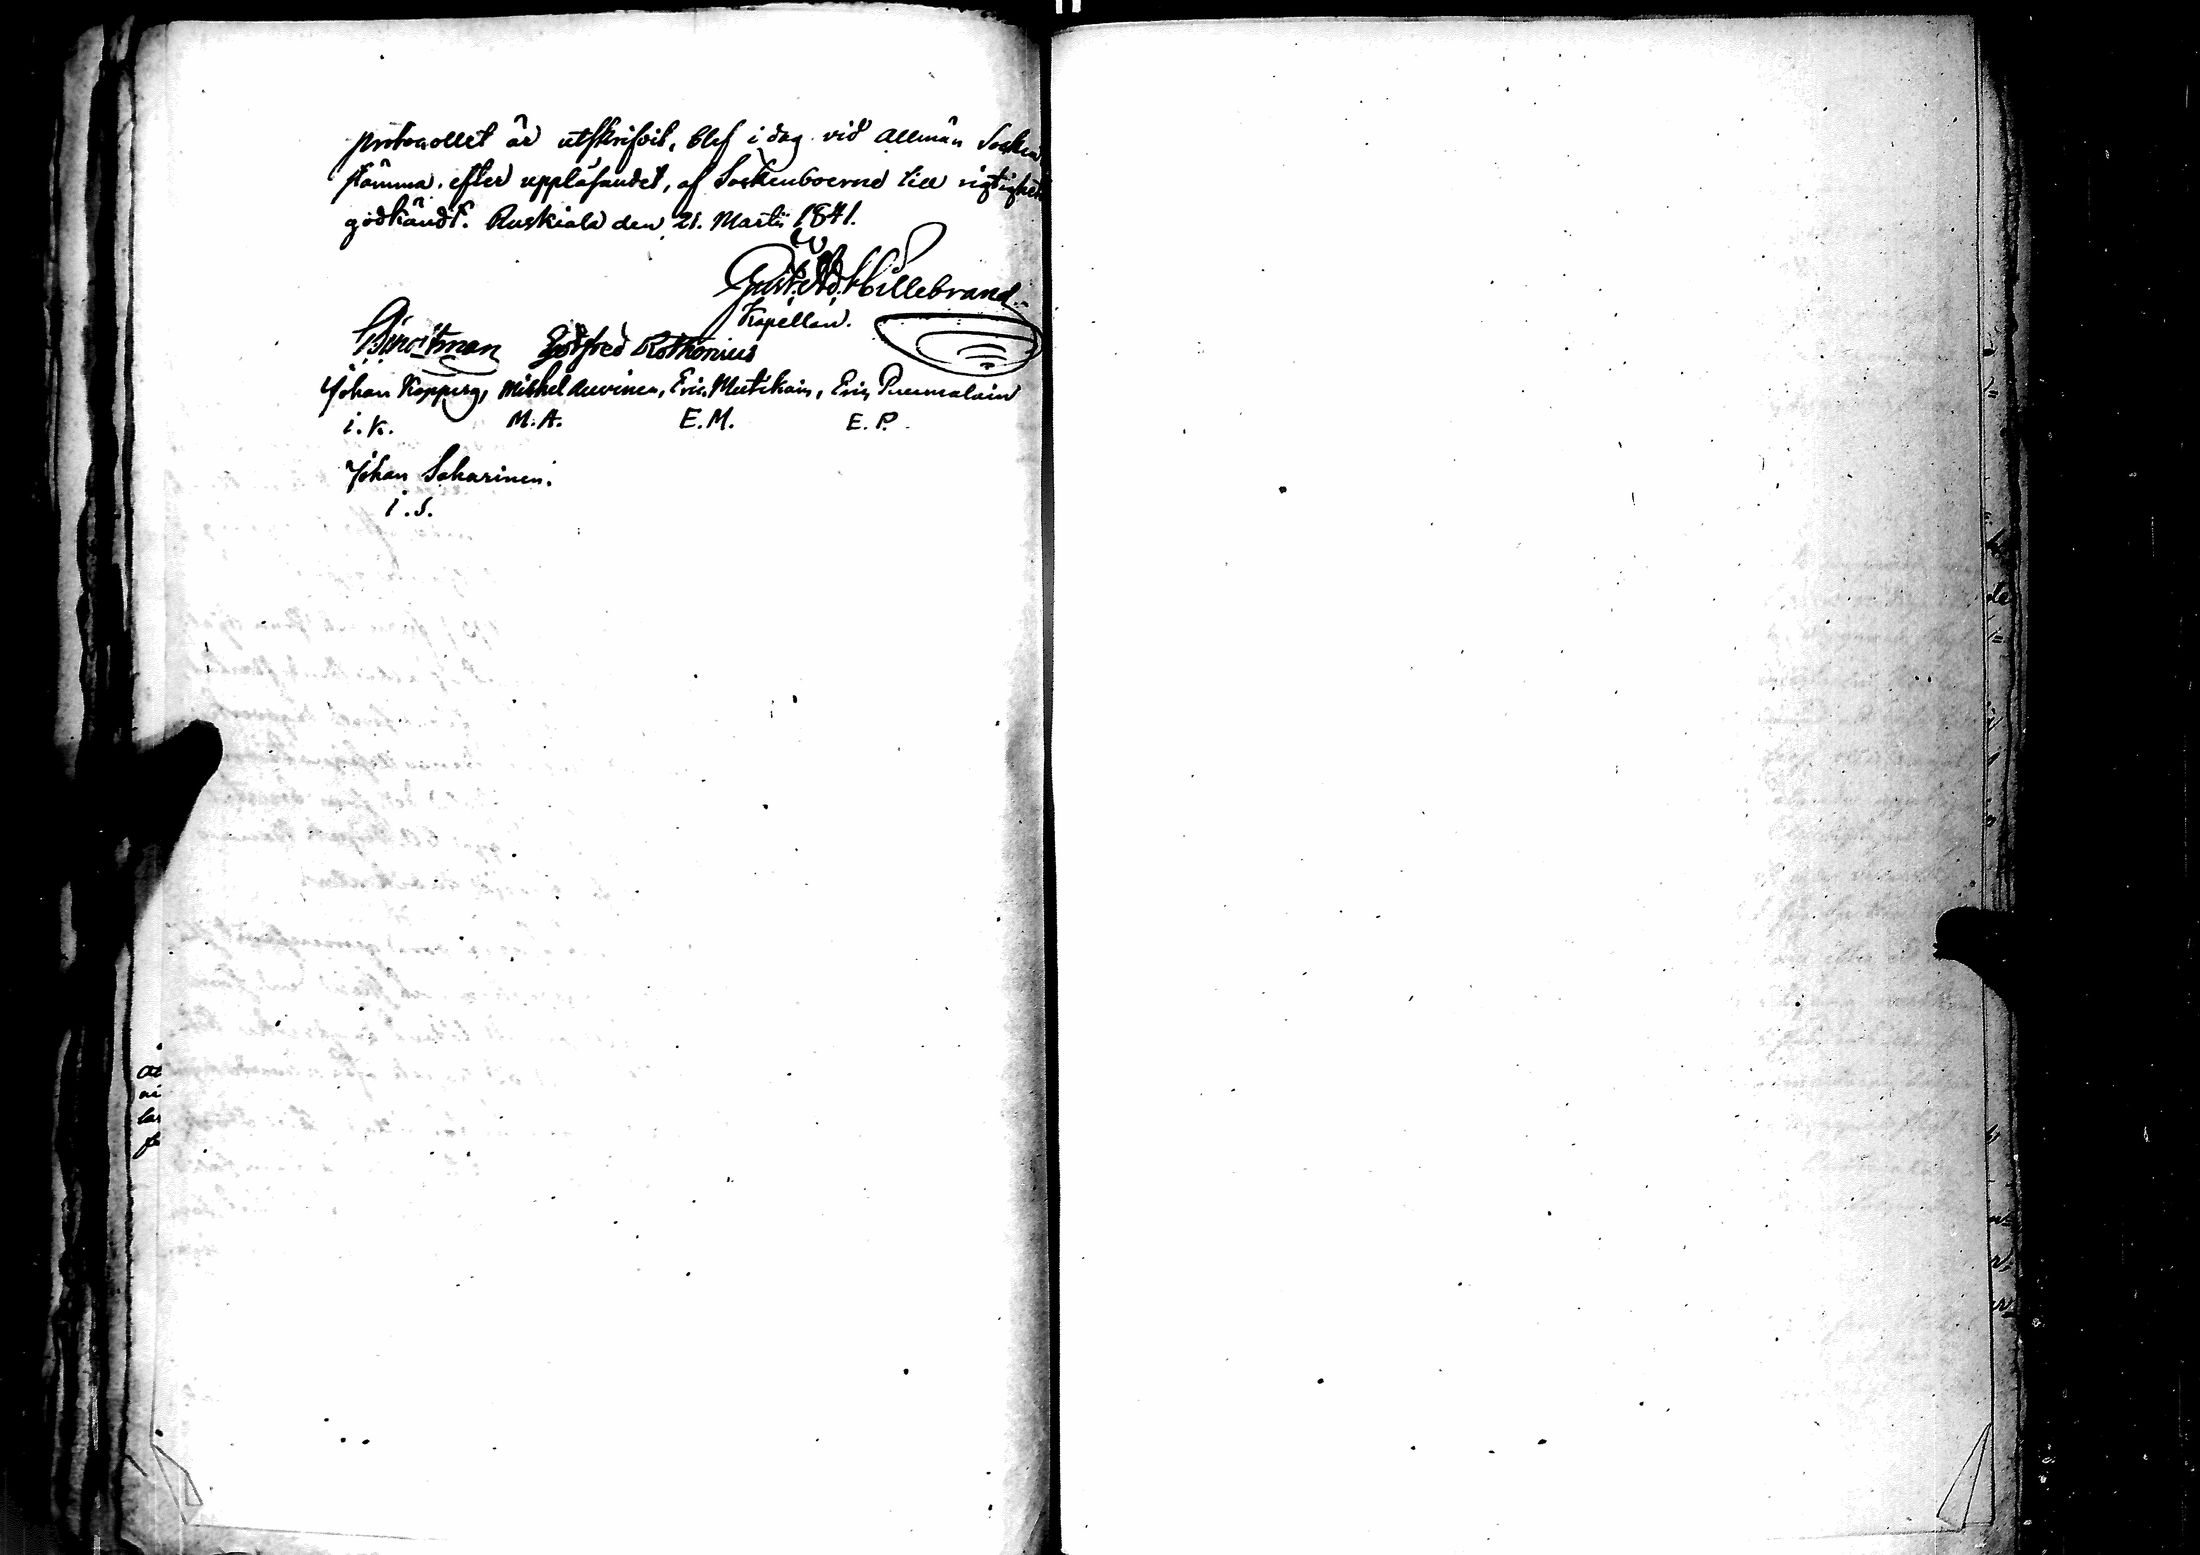 protocollet är utskrifvit, blef i dag vid allmän Socken
stämma, efter uppläsandet, af Sockenboerne till rigtighet
godkändt. Ruskiala den 21. Martii 1841.
Gust. Ad. Hillebrand.
Kapellan.
Gotfred Rothonius
Johan Kopperg, Mickel Auvinen, Eric Mutikain, Eric Purmalain
i.K. M.A. E.M. E.P.
Johan Saharinen.
i.S.